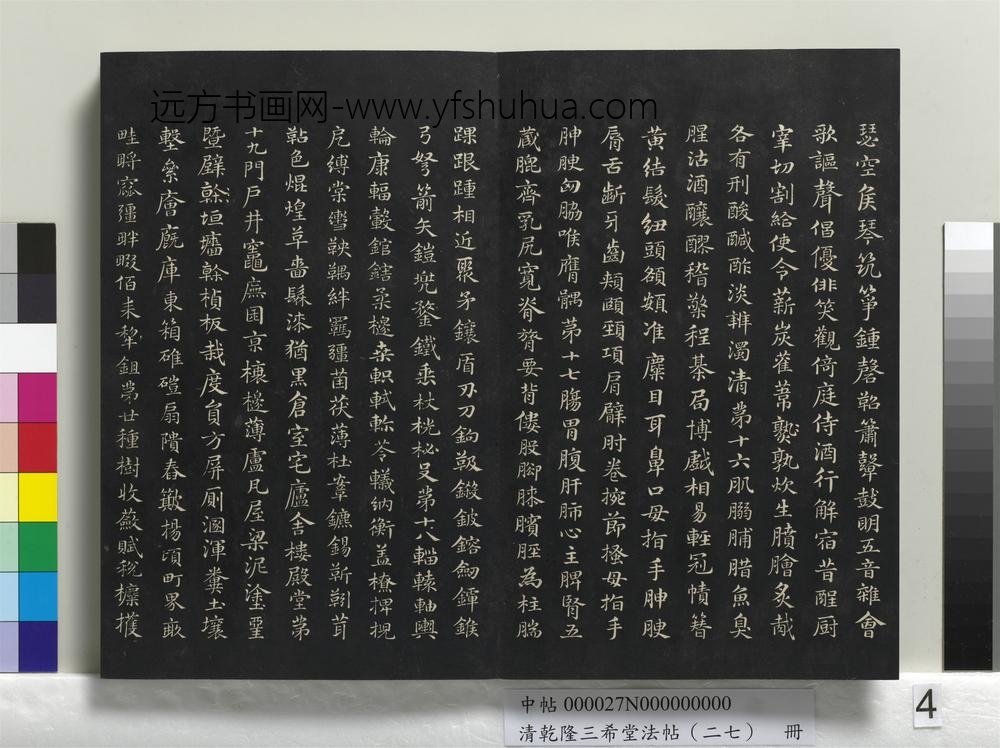 远方书画网-www.yfshuhua.com
瑟空侯琴筑筝鍾磬鞀簫鼙鼓明五音雜會
歌謳聲倡優俳笑觀倚庭侍酒行觧宿昔酲厨
宰切割給使令薪炭雚葦孰炊生膹膾炙胾
各有刑酸醎酢淡辧濁清第十六肌䐃脯腊魚臭
腥沽酒釀醪稽程棊局博戲相易輕冠幘簪
黄結髮紐頭頟頞准麋目耳鼻口毋指手胂腴
肩舌齗牙齒頰頤頸項肩臂肘卷捥節搔母指手
胂腴匈脇喉膺髃苐十七腸胃腹肝肺心主脾腎五
蔵膍齊乳尻寬脊膂要背僂股腳膝臏脛為柱腨
踝跟踵相近聚矛鑲盾刃刀鉤鍛鈹鎔劎鐔錐
弓弩箭矢鎧兜鍪鐵垂杖桄柲殳苐十八輜轅軸輿
輪康輻轂輨轄柔檧桒軹軾軫苓轙納衡盖橑椑棿
戹縛棠轡鞅靽羈疆茵茯薄杜鞌鑣錫靳靷茸
鞊色焜煌革嗇髹漆猶黒倉室宅廬舎樓殿堂苐
十九門戸井竈廡囷京榱檧薄盧凡屋梁泥塗堊
暨壁榦垣墻榦楨板栽度負方屏厠溷渾糞土壤
墼絫廥廐庫東箱碓磑扇隤舂簸揚頃町界畝
畦埒窳疆畔畷佰耒犂鉏苐廿種樹收斂賦稅檁穫
中帖 000027N000000000
清乾隆三希堂法帖（二七） 冊
4